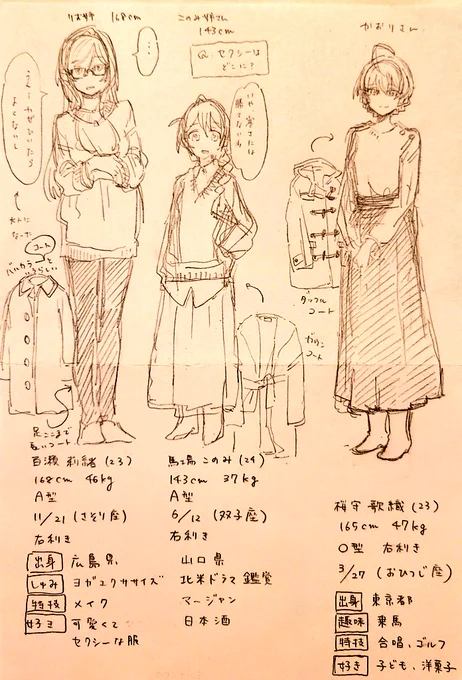 りお姉 168cm
このみ姉さん
143cm
かおりさん
…
Q. セクシーは
どこに?
いや、寒さには
勝てないわ
うぅ…かぜひいたら
よくないし
大人に
なった
コート
バルカラーと
いうらしい
足ここまで
長いコート
ダッフル
コート
ガウン
コート
百瀬 莉緒 (23)
168cm 46kg
A型
11/21 (さそり座)
右利き
出身 広島県
しゅみ ヨガエクササイズ
特技 メイク
好き 可愛くて
セクシーな服
馬場 このみ (24)
143cm 37kg
A型
6/12 (双子座)
右利き
山口県
北米ドラマ鑑賞
マージャン
日本酒
桜守 歌織 (23)
165cm 47kg
O型 右利き
3/27 (おひつじ座)
出身 東京都
趣味 乗馬
特技 合唱、ゴルフ
好き 子ども、洋菓子